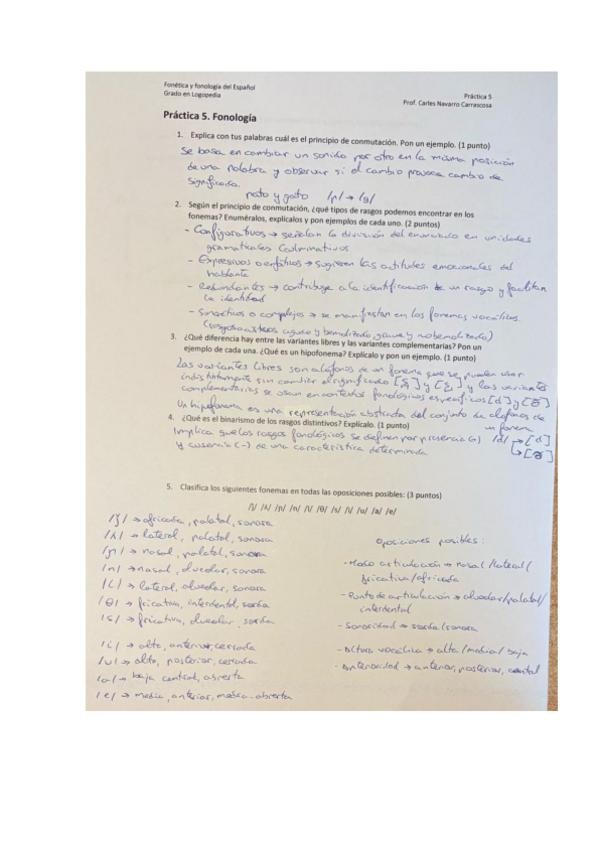 Fonética y fonología del Español
Grado en Logopedia
Práctica 5
Prof. Carles Navarro Carrascosa
Práctica 5. Fonología
1. Explica con tus palabras cuál es el principio de conmutación. Pon un ejemplo. (1 punto)
Se basa en cambiar un sonido por otro en la misma posición
de una palabra y observar si el cambio provoca cambio de
significado.
pato y gato /p/ → /g/
2. Según el principio de conmutación, ¿qué tipos de rasgos podemos encontrar en los
fonemas? Enuméralos, explícalos y pon ejemplos de cada uno. (2 puntos)
- Configurativos → señalan la división del enunciado en unidades
gramaticales Culminativos
- Expresivos o enfáticos → sugieren las actitudes emocionales del
hablante
- Redundantes → contribuye a la identificación de un rasgo y facilitan
la identidad
- Sincréticos o complejos → se manifiestan en los fonemas vocálicos
agudo y bemolizado, grave y no bemolizado)
3. ¿Qué diferencia hay entre las variantes libres y las variantes complementarias? Pon un
ejemplo de cada una. ¿Qué es un hipofonema? Explícalo y pon un ejemplo. (1 punto)
Las variantes libres son alófonos de un fonema que se pueden usar
indistintamente sin cambiar el significado y las variantes
complementarias se usan en contextos fonológicos específicos [d] y
Un hipofonema es una representación abstracta del conjunto de alófonos de
un fonema
4. ¿Qué es el binarismo de los rasgos distintivos? Explícalo. (1 punto)
Implica que los rasgos fonológicos se definen por presencia (+) /d/ → [d]
y ausencia (-) de una característica determinada
5. Clasifica los siguientes fonemas en todas las oposiciones posibles: (3 puntos)
→ africada, palatal, sonora
/ʎ/ → lateral, palatal, sonora
/ɲ/ → nasal, palatal, sonora
/n/ → nasal, alveolar, sonora
/l/ → lateral, alveolar, sonora
/θ/ → fricativa, interdental, sorda
/s/ → fricativa, alveolar, sorda
/i/ → alta, anterior, cerrada
/u/ → alta, posterior, cerrada
/a/ → baja central, abierta
/e/ → media, anterior, media-abierta
Oposiciones posibles:
- Modo articulación → nasal/lateral/
fricativa/africada
- Punto de articulación → alveolar/palatal/
interdental
- Sonoridad → sorda/sonora
- Altura vocálica → alta/media/baja
- Anterioridad → anterior, posterior, central